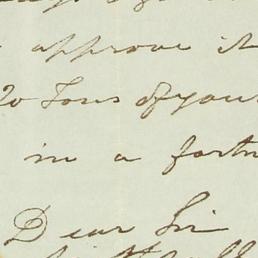 approve it
20 Tons of your
in a fortn
Dear Sir